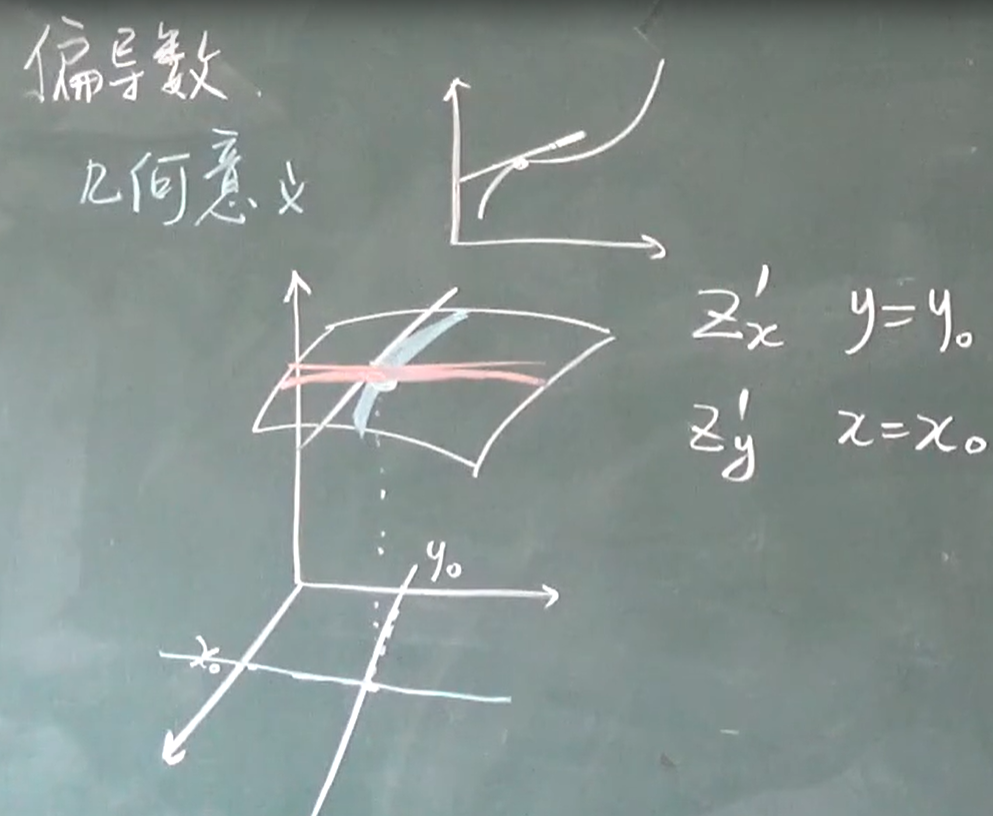 偏导数
几何意义
z'x y=y₀
z'y x=x₀
y₀
x₀